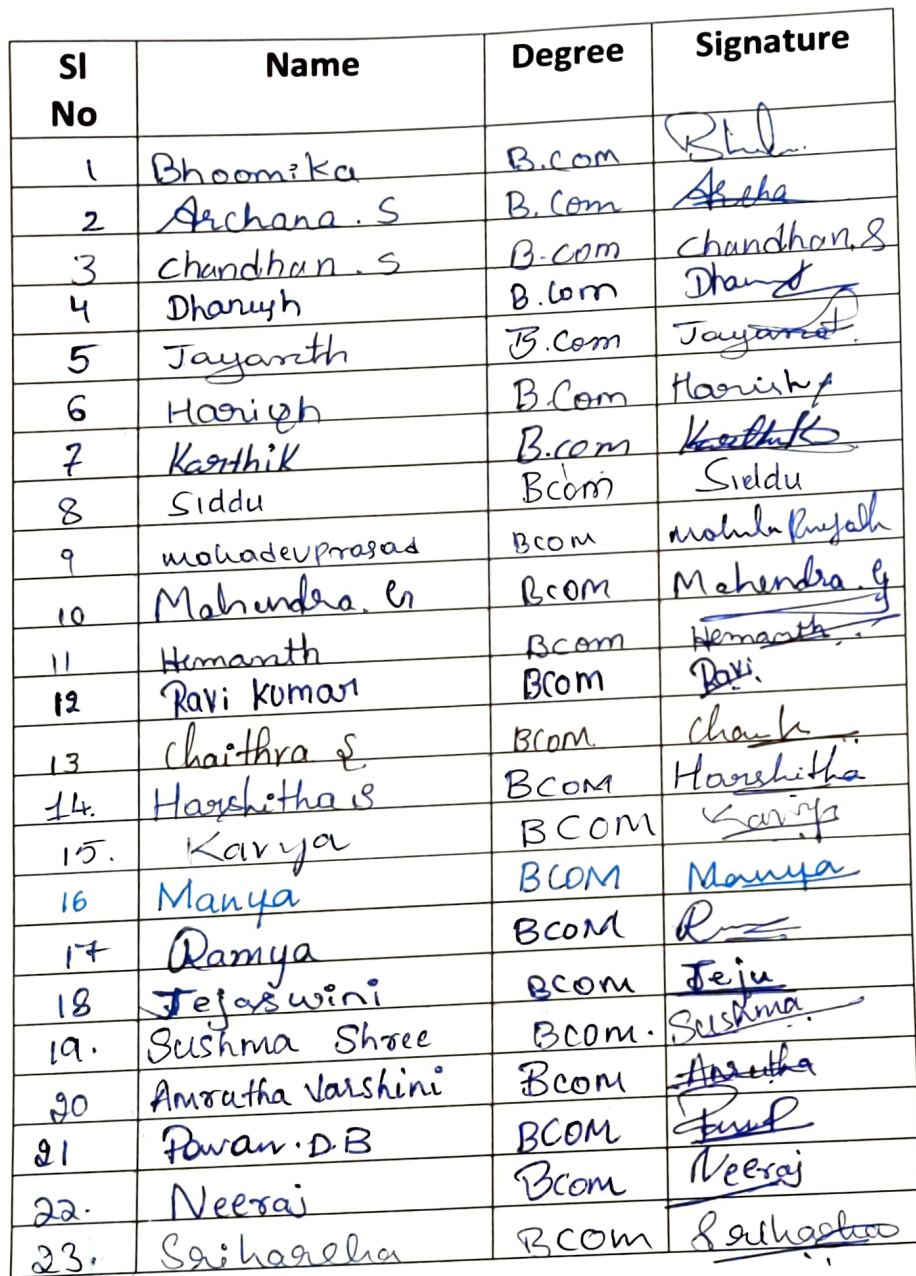 Sl No Name Degree Signature
1 Bhoomika B.Com
2 Archana. S B.Com
3 Chandhan. S B.com Chandhan. S
4 Dhanush B.Com
5 Jayanth B.Com Jayant
6 Harish B.Com Harish
7 Karthik B.com Karthik
8 Siddu Bcom Siddu
9 mahadevprasad BCOM
10 Mahendra. G BCOM Mahendra. G
11 Hemanth Bcom Hemanth
12 Ravi Kumar BCOM Ravi
13 Chaithra S BCOM
14. Harshitha S BCOM Harshitha
15. Kavya BCOM Kavya
16 Manya BCOM Manya
17 Ramya BCOM
18 Tejaswini BCOM Teju
19. Sushma Shree BCOM. Sushma
20 Amrutha Varshini Bcom
21 Pawan. D.B BCOM
22. Neeraj Bcom Neeraj
23. Sriharsha BCOM